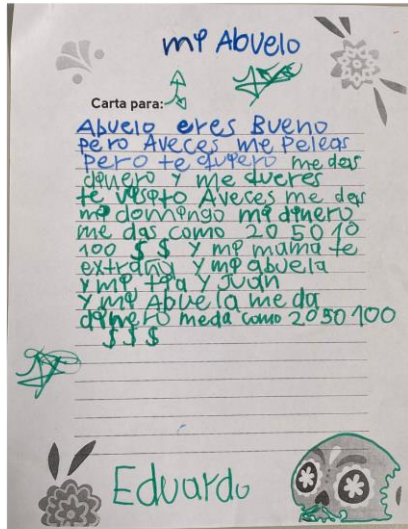 mi Abuelo
Carta para:
Abuelo eres Bueno
pero Aveces me Peleas
pero te quiero me das
dinero y me queres
te visito Aveces me das
mi domingo mi dinero
me das como 20 50 10
100 $ $ Y mi mama te
extraña Y mi abuela
y mi tia Y Juan
Y mi Abuela me da
dinero meda como 20 50 100
$ $ $
Eduardo